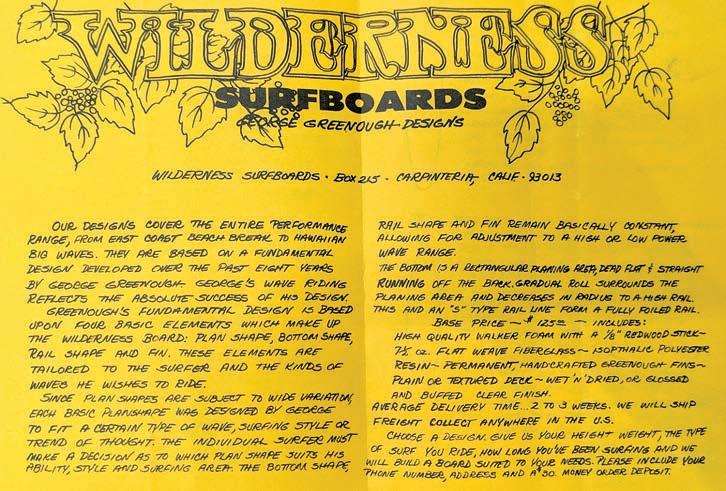 WILDERNESS
SURFBOARDS
GEORGE GREENOUGH DESIGNS
WILDERNESS SURFBOARDS · BOX 215 · CARPINTERIA, CALIF · 93013
OUR DESIGNS COVER THE ENTIRE PERFORMANCE
RANGE, FROM EAST COAST BEACH BREAK TO HAWAIIAN
BIG WAVES. THEY ARE BASED ON A FUNDAMENTAL
DESIGN DEVELOPED OVER THE PAST EIGHT YEARS
BY GEORGE GREENOUGH. GEORGE'S WAVE RIDING
REFLECTS THE ABSOLUTE SUCCESS OF HIS DESIGN.
GREENOUGH'S FUNDAMENTAL DESIGN IS BASED
UPON FOUR BASIC ELEMENTS WHICH MAKE UP
THE WILDERNESS BOARD: PLAN SHAPE, BOTTOM SHAPE,
RAIL SHAPE AND FIN. THESE ELEMENTS ARE
TAILORED TO THE SURFER AND THE KINDS OF
WAVES HE WISHES TO RIDE.
SINCE PLAN SHAPES ARE SUBJECT TO WIDE VARIATION,
EACH BASIC PLANSHAPE WAS DESIGNED BY GEORGE
TO FIT A CERTAIN TYPE OF WAVE, SURFING STYLE OR
TREND OF THOUGHT. THE INDIVIDUAL SURFER MUST
MAKE A DECISION AS TO WHICH PLAN SHAPE SUITS HIS
ABILITY, STYLE AND SURFING AREA. THE BOTTOM SHAPE,
RAIL SHAPE AND FIN REMAIN BASICALLY CONSTANT,
ALLOWING FOR ADJUSTMENT TO A HIGH OR LOW POWER
WAVE RANGE.
THE BOTTOM IS A RECTANGULAR PLANING AREA, DEAD FLAT & STRAIGHT
RUNNING OFF THE BACK. GRADUAL ROLL SURROUNDS THE
PLANING AREA AND DECREASES IN RADIUS TO A HIGH RAIL.
THIS AND AN "S" TYPE RAIL LINE FORM A FULLY FOILED RAIL.
BASE PRICE ~ $125.00 ~ INCLUDES:
HIGH QUALITY WALKER FOAM WITH A 1/8" REDWOOD STICK ~
7½ OZ. FLAT WEAVE FIBERGLASS ~ ISOPTHALIC POLYESTER
RESIN ~ PERMANENT, HANDCRAFTED GREENOUGH FINS ~
PLAIN OR TEXTURED DECK ~ WET 'N' DRIED, OR GLOSSED
AND BUFFED CLEAR FINISH.
AVERAGE DELIVERY TIME... 2 TO 3 WEEKS. WE WILL SHIP
FREIGHT COLLECT ANYWHERE IN THE U.S.
CHOOSE A DESIGN. GIVE US YOUR HEIGHT WEIGHT, THE TYPE
OF SURF YOU RIDE, HOW LONG YOU'VE BEEN SURFING AND WE
WILL BUILD A BOARD SUITED TO YOUR NEEDS. PLEASE INCLUDE YOUR
PHONE NUMBER, ADDRESS AND A $30. MONEY ORDER DEPOSIT.